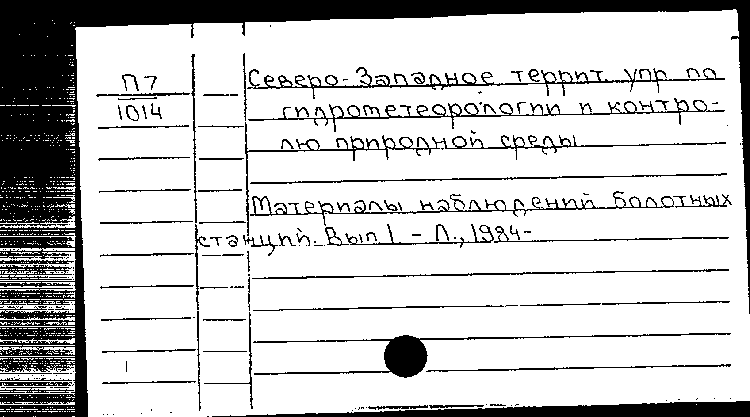 П7
1014
Северо-Западное террит. упр. по
гидрометеорологии и контро-
лю природной среды
Материалы наблюдений болотных
станций. Вып 1. - Л., 1984-